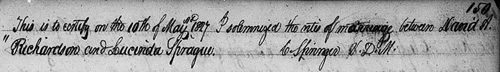 150
This is to certify on the 10th of May 1827 I solemnized the rites of marriage between David H.
Richardson and Lucinda Sprague. C. Springer